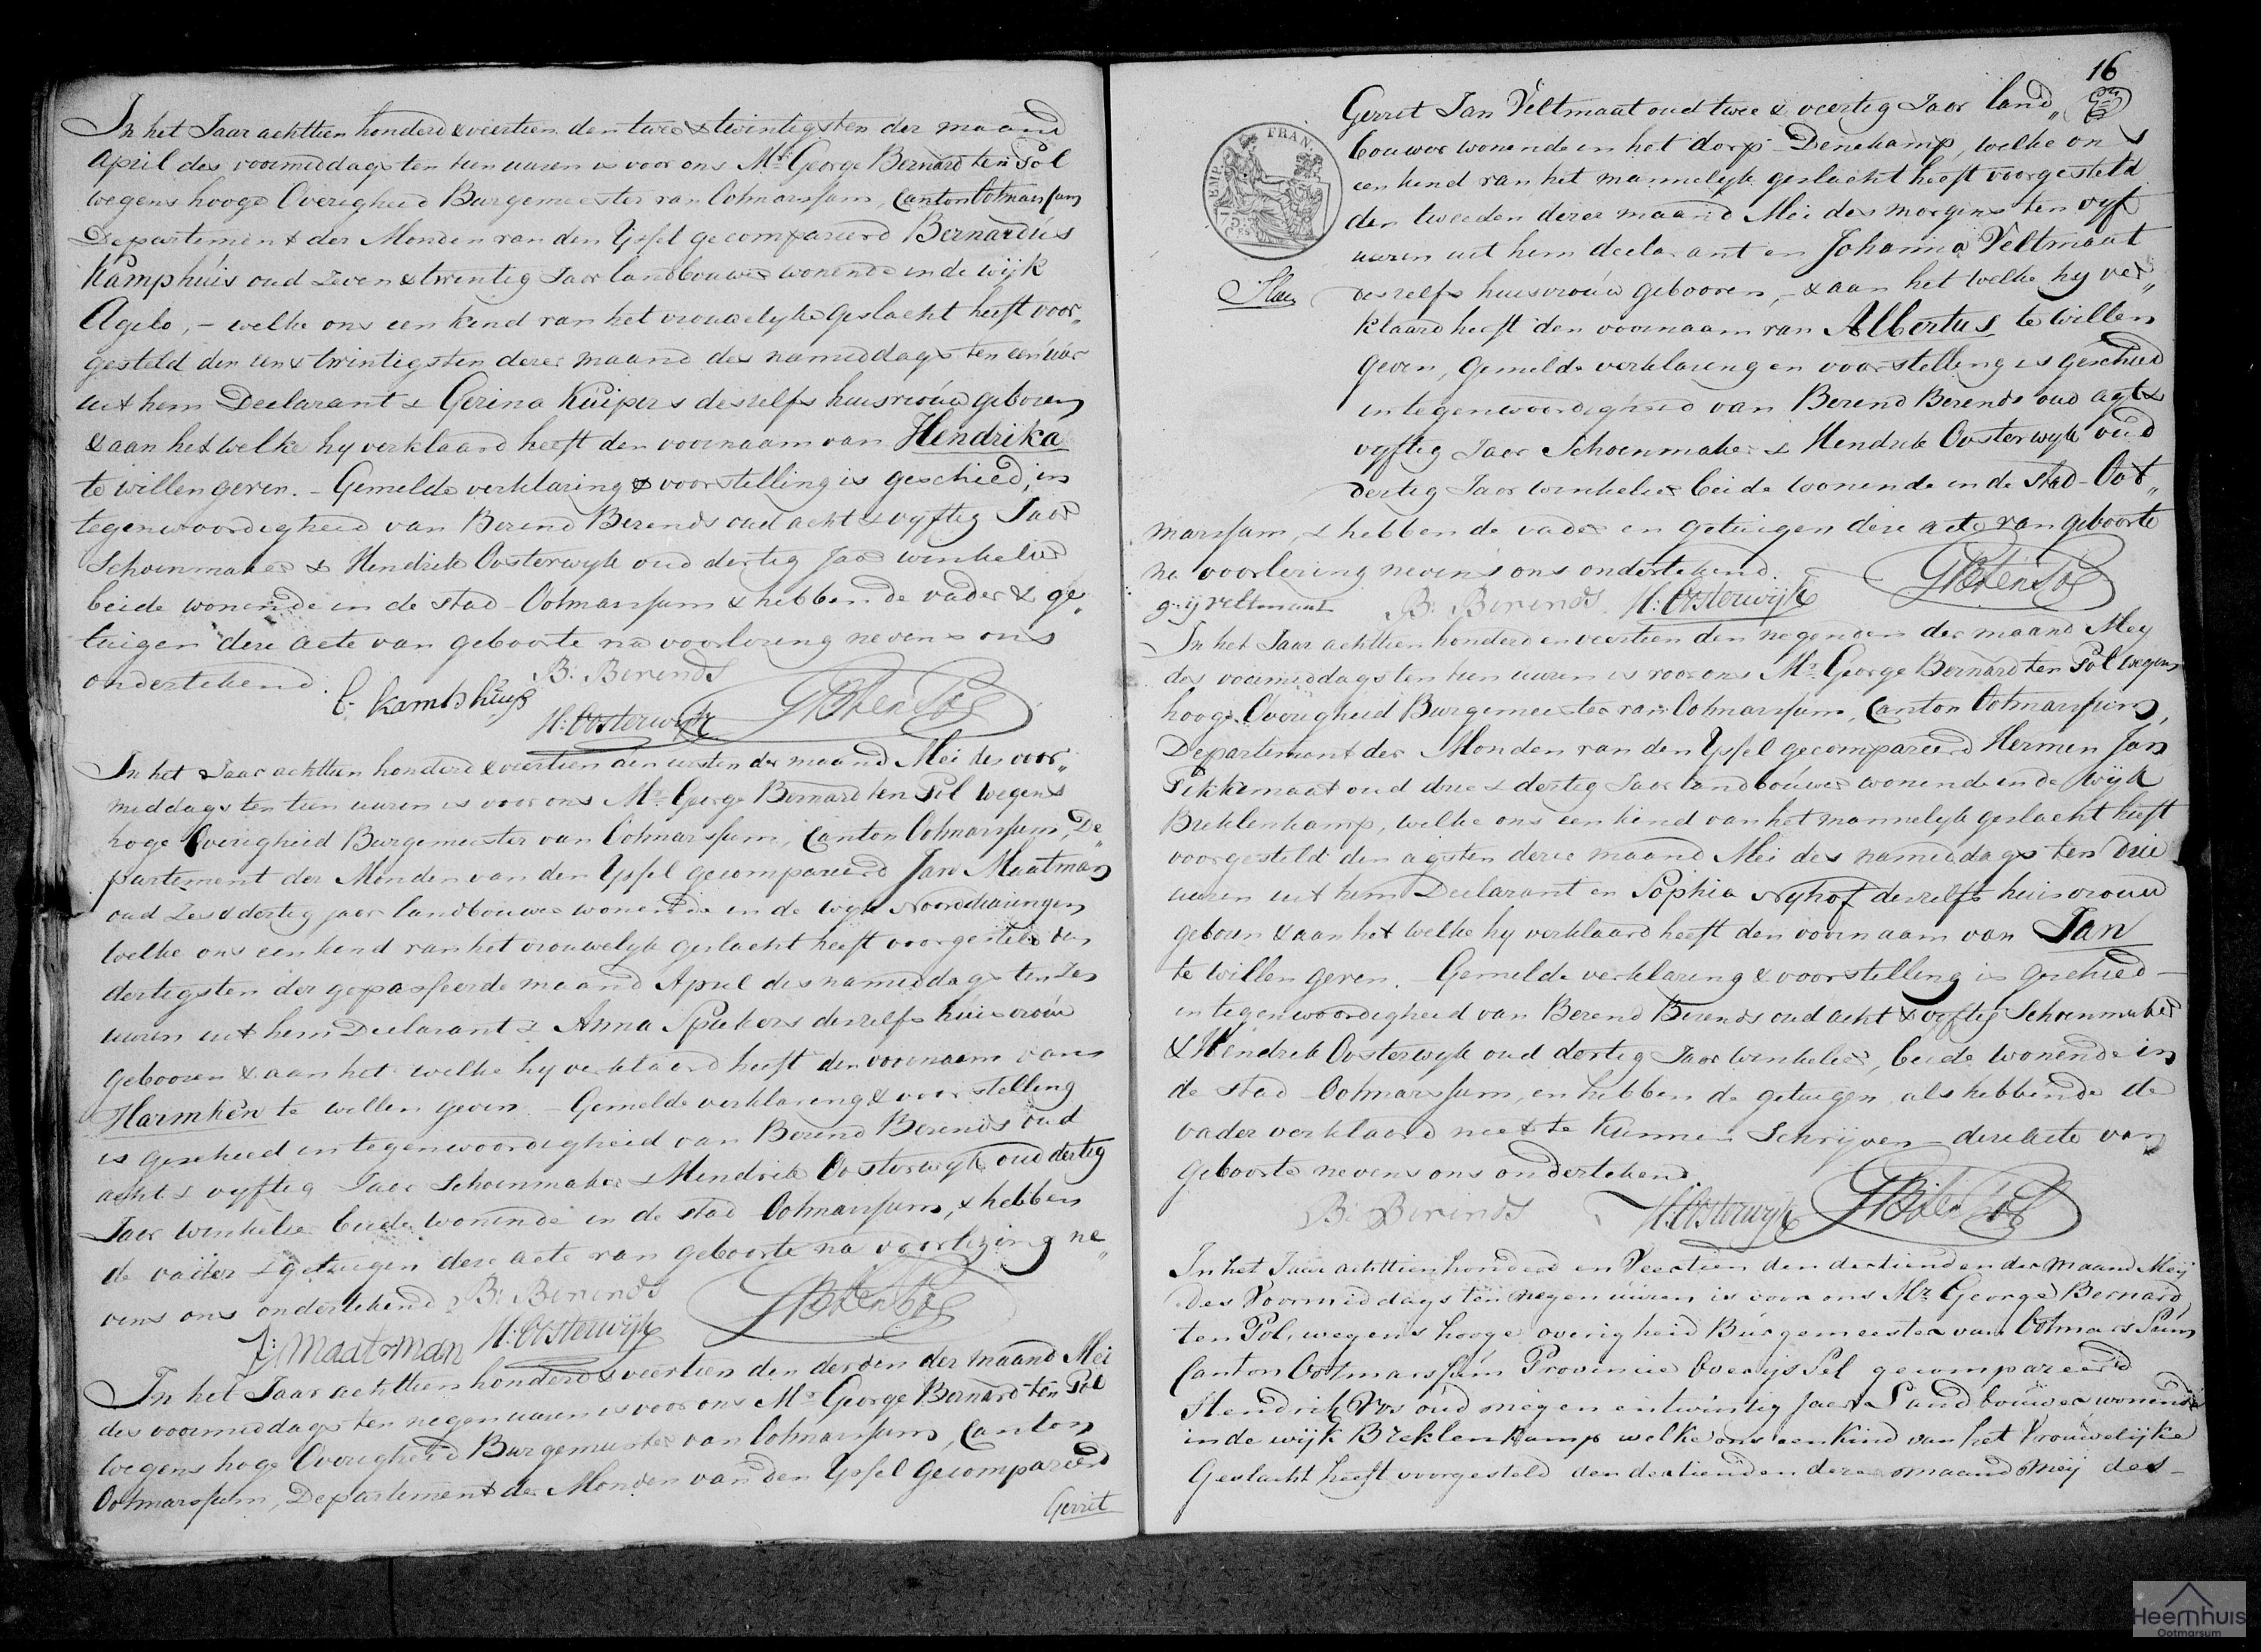 In het Jaar achttien honderd & veertien den twee & twintigsten der maand
April des voormiddags ten tien uuren is voor ons Mr. George Bernard ten Pol
wegens hooge Overigheid Burgemeester van Ootmarssum, Canton Ootmarssum
Departement der Monden van den Yssel gecompareerd Bernardus
Kamphuis oud zeven & twintig Jaar landbouwer wonende in de wijk
Agelo, - welke ons een kind van het vrouwelyke geslacht heeft voor„
gesteld den een & twintigsten dezer maand des namiddags ten een uur
uit hem Declarant & Gerina Kuipers deszelfs huisvrouw geboren
& aan het welke hy verklaard heeft den voornaam van Hendrika
te willen geven. - Gemelde verklaring & voorstelling is geschied, in
tegenwoordigheid van Berend Berends oud acht & vyftig Jaar
Schoenmaker & Hendrik Oosterwyk oud dertig Jaar winkelier
beide wonende in de stad Ootmarssum & hebben de vader & ge„
tuigen deze acte van geboorte na voorlezing nevens ons
ondertekend.
B: Berends
B. kamphuis
H: Oosterwijk GBtenPol
In het Jaar achttien honderd & veertien den eersten der maand Mei des voor„
middags ten tien uuren is voor ons Mr. George Bernard ten Pol wegens
hoge Overigheid Burgemeester van Ootmarssum, Canton Ootmarssum, De„
partement der Monden van den Yssel gecompareerd Jan Maatman
oud zes & dertig jaar landbouwer wonende in de wyk Noorddeurningen
welke ons een kind van het vrouwelyk geslacht heeft voorgesteld den
dertigsten der gepasseerde maand April des namiddags ten zes
uuren uit hem Declarant & Anna Spiekers deszelfs huisvrouw
gebooren & aan het welke hy verklaard heeft den voornaam van
Harmken te willen geven - Gemelde verklaring & voorstelling
is geschied in tegenwoordigheid van Berend Berends oud
acht & vyftig Jaar Schoenmaker & Hendrik Oosterwyk oud dertig
Jaar winkelier beide wonende in de stad Ootmarssum, & hebben
de vader & getuigen deze acte van geboorte na voorlezing ne„
vens ons ondertekend B: Berends GBtenPol
J: Maatman H: Oosterwijk
In het Jaar achttien honderd & veertien den derden der maand Mei
des voormiddags ten negen uuren is voor ons Mr. George Bernard ten Pol
wegens hoge Overigheid Burgemeester van Ootmarssum, Canton
Ootmarssum, Departement der Monden van den Yssel gecompareerd
Gerrit
16
Gerrit Jan Veltmaat oud twee & veertig Jaar land„
bouwer wonende in het dorp Denekamp, welke ons
een kind van het mannelyk geslacht heeft voorgesteld
den tweeden dezer maand Mei des morgens ten vyf
uuren uit hem declarant en Johanna Veltmaat
deszelfs huisvrouw gebooren, - & aan het welke hy ver„
klaard heeft den voornaam van Albertus te willen
geven, gemelde verklaring en voorstelling is geschied
in tegenwoordigheid van Berend Berends oud agt &
vyftig Jaar Schoenmaker & Hendrik Oosterwyk oud
dertig Jaar winkelier beide wonende in de Stad Oot„
marssum, & hebben de vader en getuigen deze acte van geboorte
na voorlezing nevens ons ondertekend. GBtenPol
g: ij veltmaat B: Berends H: Oosterwijk
EMP. FRAN.
In het Jaar achttien honderd en veertien den negenden der maand Mey
des voormiddags ten tien uuren is voor ons Mr. George Bernard ten Pol wegens
hooge Overigheid Burgemeester van Ootmarssum, Canton Ootmarssum,
Departement der Monden van den Yssel gecompareerd Hermen Jan
Pikkemaat oud drie & dertig Jaar landbouwer wonende in de wyk
Breklenkamp, welke ons een kind van het mannelyk geslacht heeft
voorgesteld den agsten dezer maand Mei des namiddags ten drie
uuren uit hem Declarant en Sophia Nyhof deszelfs huisvrouw
geboren & aan het welke hy verklaard heeft den voornaam van Jan
te willen geven. - Gemelde verklaring & voorstelling is geschied -
in tegenwoordigheid van Berend Berends oud acht & vyftig Schoenmaker
& Hendrik Oosterwyk oud dertig Jaar winkelier, beide wonende in
de stad Ootmarssum, en hebben de getuigen als hebbende de
vader verklaard niet te kunnen Schrijven deze acte van
geboorte nevens ons ondertekend.
B: Berends H: Oosterwijk GBtenPol
In het Jaar achttien honderd en Veertien den dertienden der maand Meij
des Voormiddags ten negen uuren is voor ons Mr. George Bernard
ten Pol, wegens hooge overigheid Burgemeester van Ootmarssum
Canton Ootmarssum Provincie Overijssel gecompareerd
Hendrik Vos oud negen en twintig Jaar Landbouwer wonende
in de wijk Breklenkamp welke ons een kind van het Vrouwelijke
Geslacht heeft voorgesteld den dertienden dezer maand Meij des -
Heemhuis
Ootmarsum